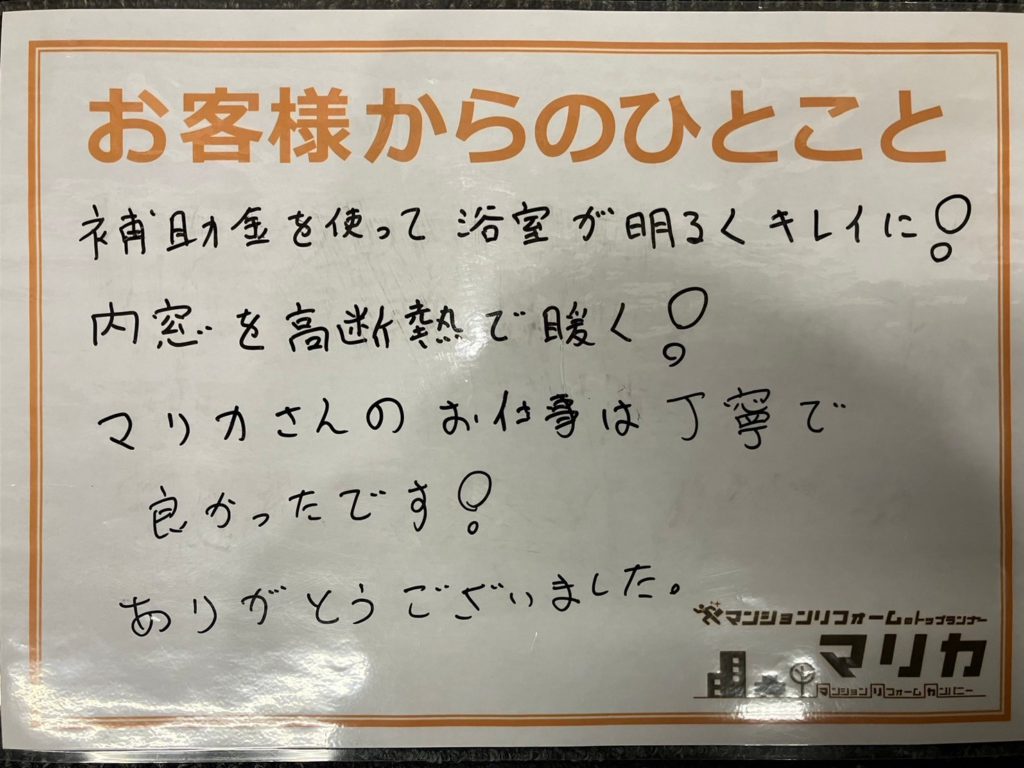 お客様からのひとこと
補助金を使って浴室が明るくキレイに!
内窓を高断熱で暖く!
マリカさんのお仕事は丁寧で
良かったです!
ありがとうございました。
マンションリフォームのトップランナー
マリカ
マンションリフォームカンパニー